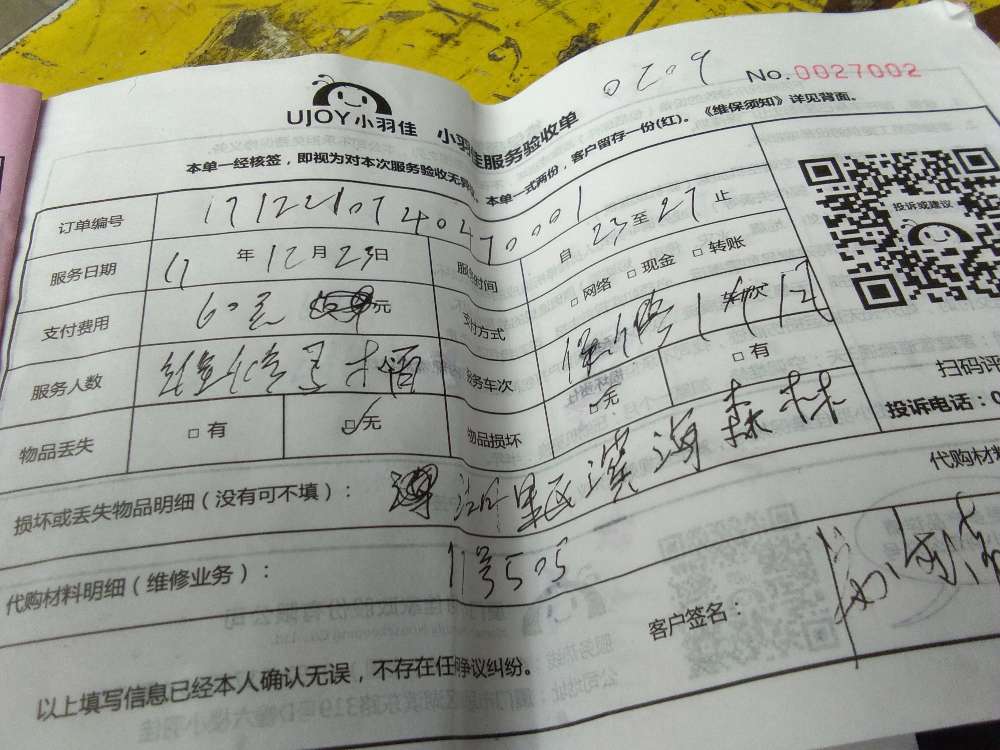 UJOY小羽佳 小羽佳服务验收单 0209 No.0027002
本单一经核签，即视为对本次服务验收无异 本单一式两份，客户留存一份(红)。《维保须知》详见背面。
订单编号 1712210740470001
服务日期 17 年 12 月 23 日 服务时间 自 23 至 27 止
支付费用 60元 元 支付方式 □ 网络 □ 现金 □ 转账
服务人数 服务车次
物品丢失 □ 有 □ 无 物品损坏 □ 无 □ 有
损坏或丢失物品明细（没有可不填）： 滨海森林
代购材料明细（维修业务）： 11号505
以上填写信息已经本人确认无误，不存在任何争议纠纷。
客户签名：
投诉或建议
扫码评
投诉电话：0
代购材料